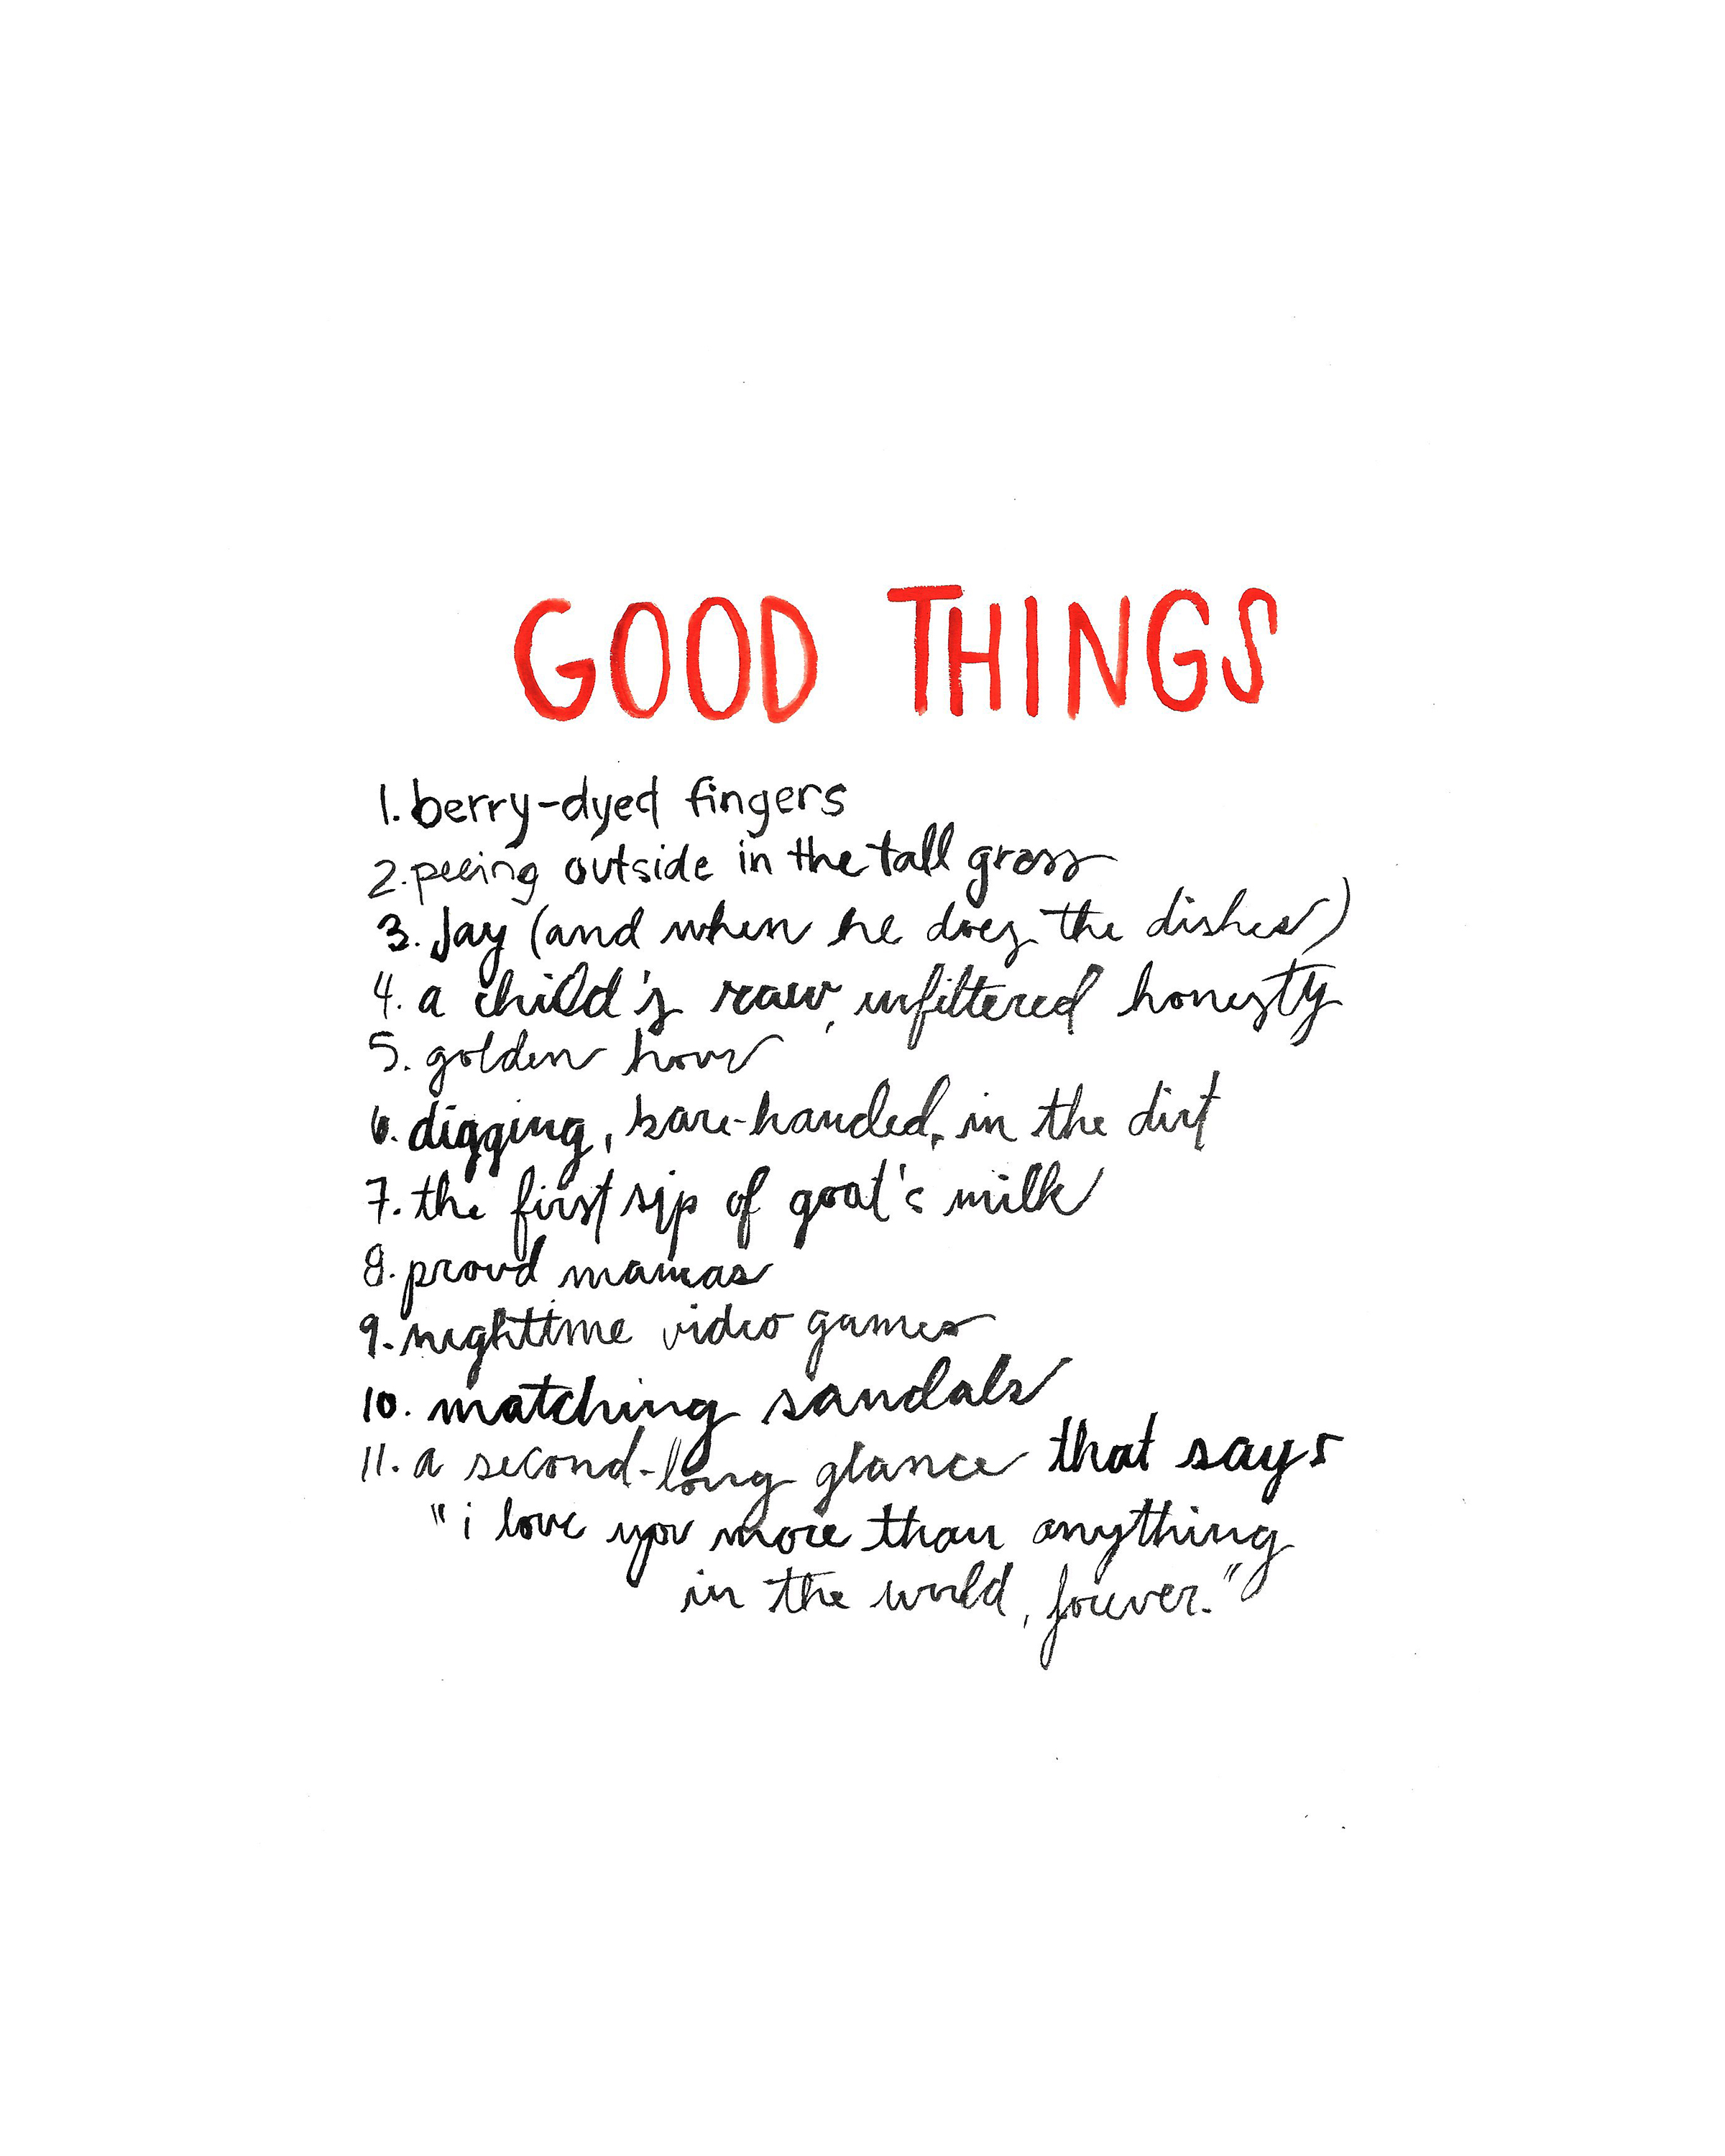 GOOD THINGS
1. berry-dyed fingers
2. peeing outside in the tall grass
3. Jay (and when he does the dishes)
4. a child's raw, unfiltered honesty
5. golden hour
6. digging, bare-handed, in the dirt
7. the first sip of goat's milk
8. proud mamas
9. nighttime video games
10. matching sandals
11. a second-long glance that says
"i love you more than anything
in the world, forever."